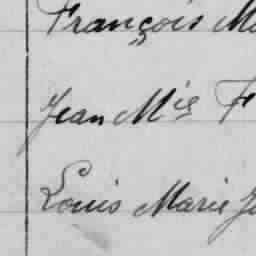 François
Jean M^ie F
Louis Marie